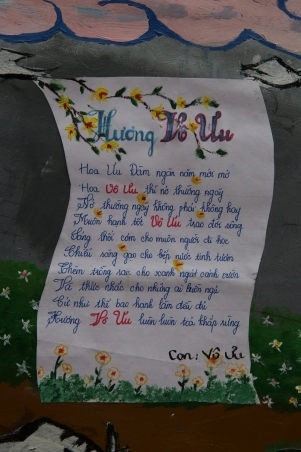 Hương Vô Ưu
Hoa Ưu Đàm ngàn năm mới nở
Hoa Vô Ưu thì nở thường ngày
Nở thường ngày không phải không hay
Muôn hạnh tốt Vô Ưu trao đời sống
Sáng thổi cơm cho muôn người đi học
Chiều sàng gạo cho bếp nước tinh tươm
Thêm trồng rau cho xanh ngát cánh vườn
Và thức nhắc cho những ai thiền ngồi
Cứ như thế bao hạnh lành đều đủ
Hương Vô Ưu luôn luôn toả khắp rừng
Con: Vô Ưu